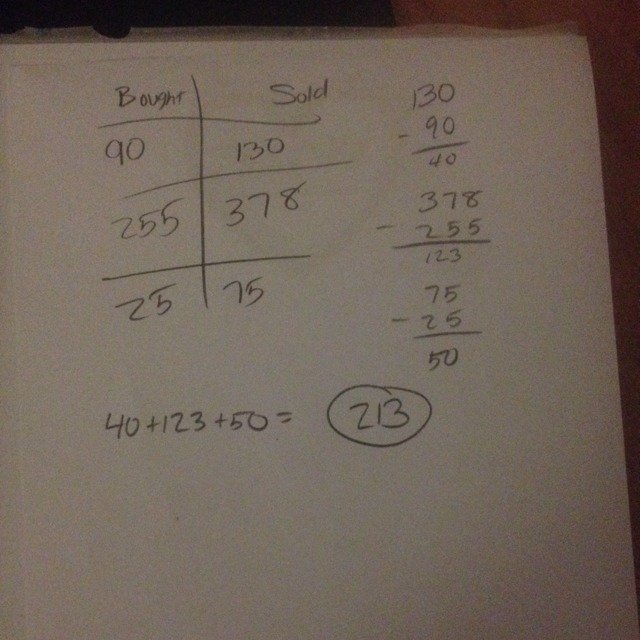 Bought Sold
90 130
255 378
25 75
130
- 90
40
378
- 255
123
75
- 25
50
40+123+50= 213